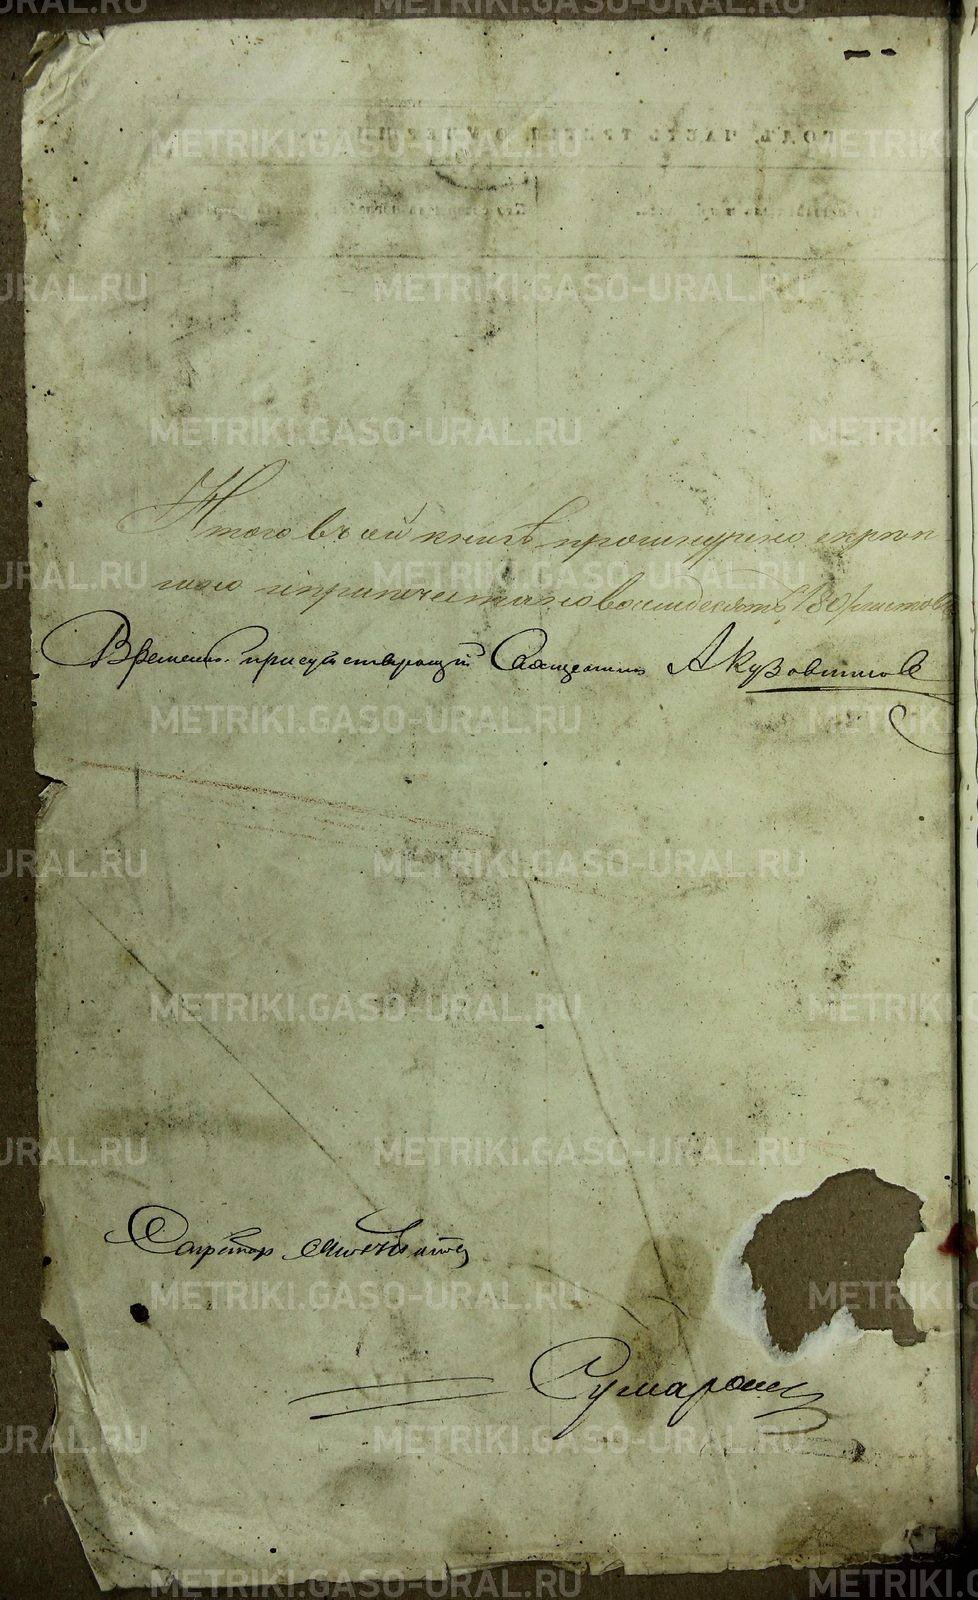 Итого въ сей книгѣ прошнурено скрѣп
лено и припечатано восемьдесятъ (80) листовъ
Временно присутствующій Священникъ А Кузовниковъ
Секретарь
Сумароковъ
METRIKI.GASO-URAL.RU